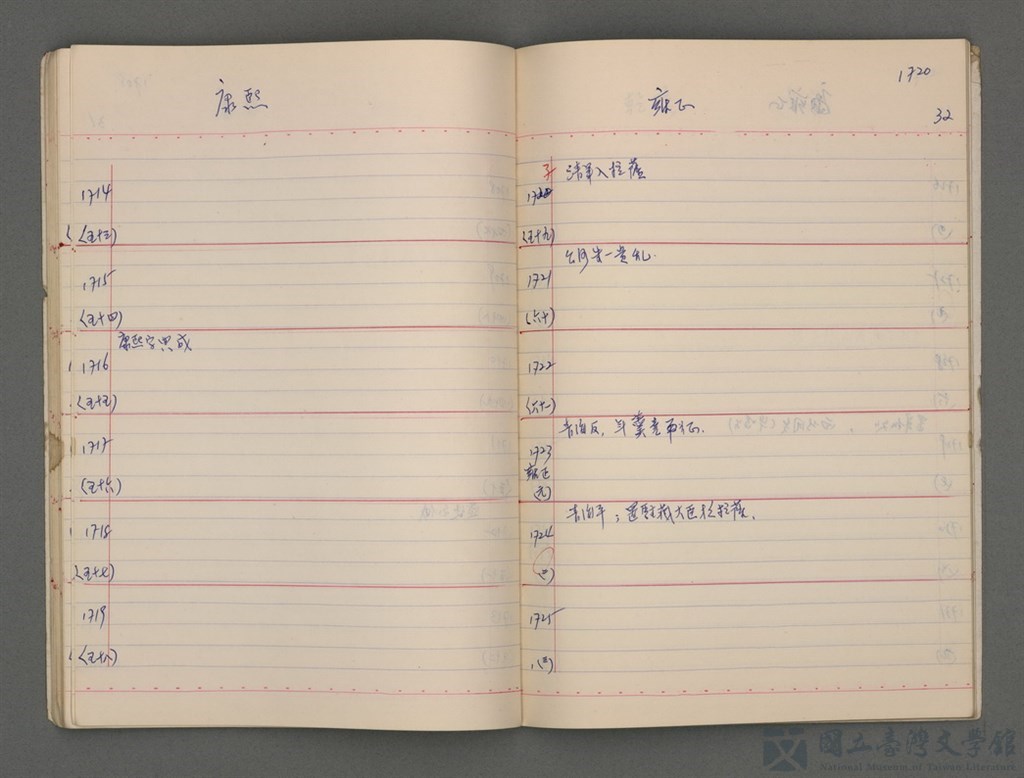 康熙
1714
(五十三)
1715
(五十四)
康熙字典成
1716
(五十五)
1717
(五十六)
1718
(五十七)
1719
(五十八)
1720
雍正
32
清軍入拉薩
(五十九)
台湾朱一貴乱.
1721
(六十)
1722
(六十一)
青海反, 年羹堯平征.
1723
雍正
(元)
青海平; 置駐藏大臣於拉薩.
1724
(二)
1725
(三)
國立臺灣文學館
National Museum of Taiwan Literature